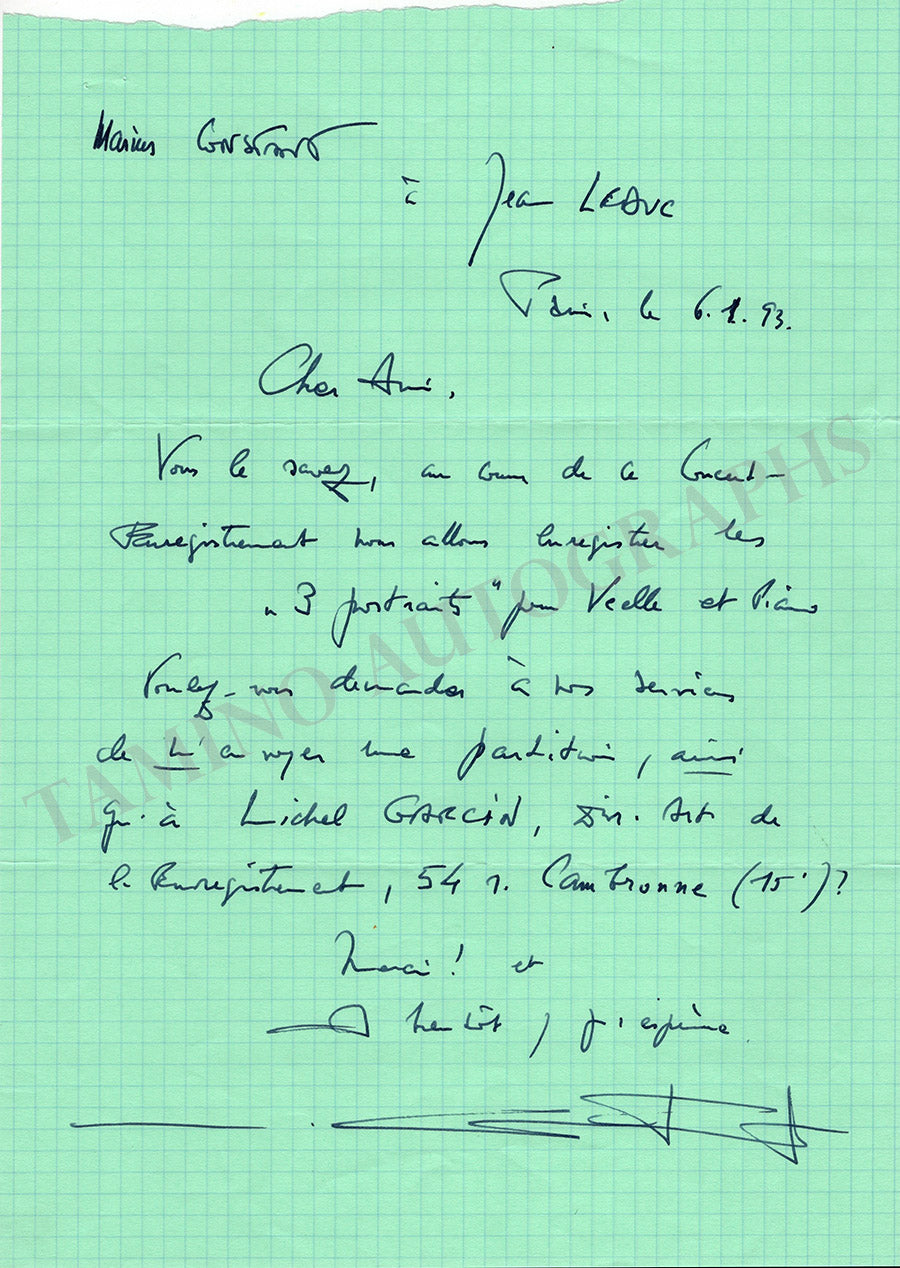 Marius CONSTANT
à Jean LEDUC
Paris, le 6.1.93.
Cher Ami,
Vous le savez, au cours de ce Concert-
Enregistrement nous allons Enregistrer les
"3 portraits" pour Vcelle et Piano
Voulez-vous demander à vos services
de m'envoyer une partition, ainsi
qu'à Michel GARCIN, Dir. Art. de
l'Enregistrement, 54 r. Cambronne (15e)?
Merci! et
A bientôt, j'espère
TAMINO AUTOGRAPHS